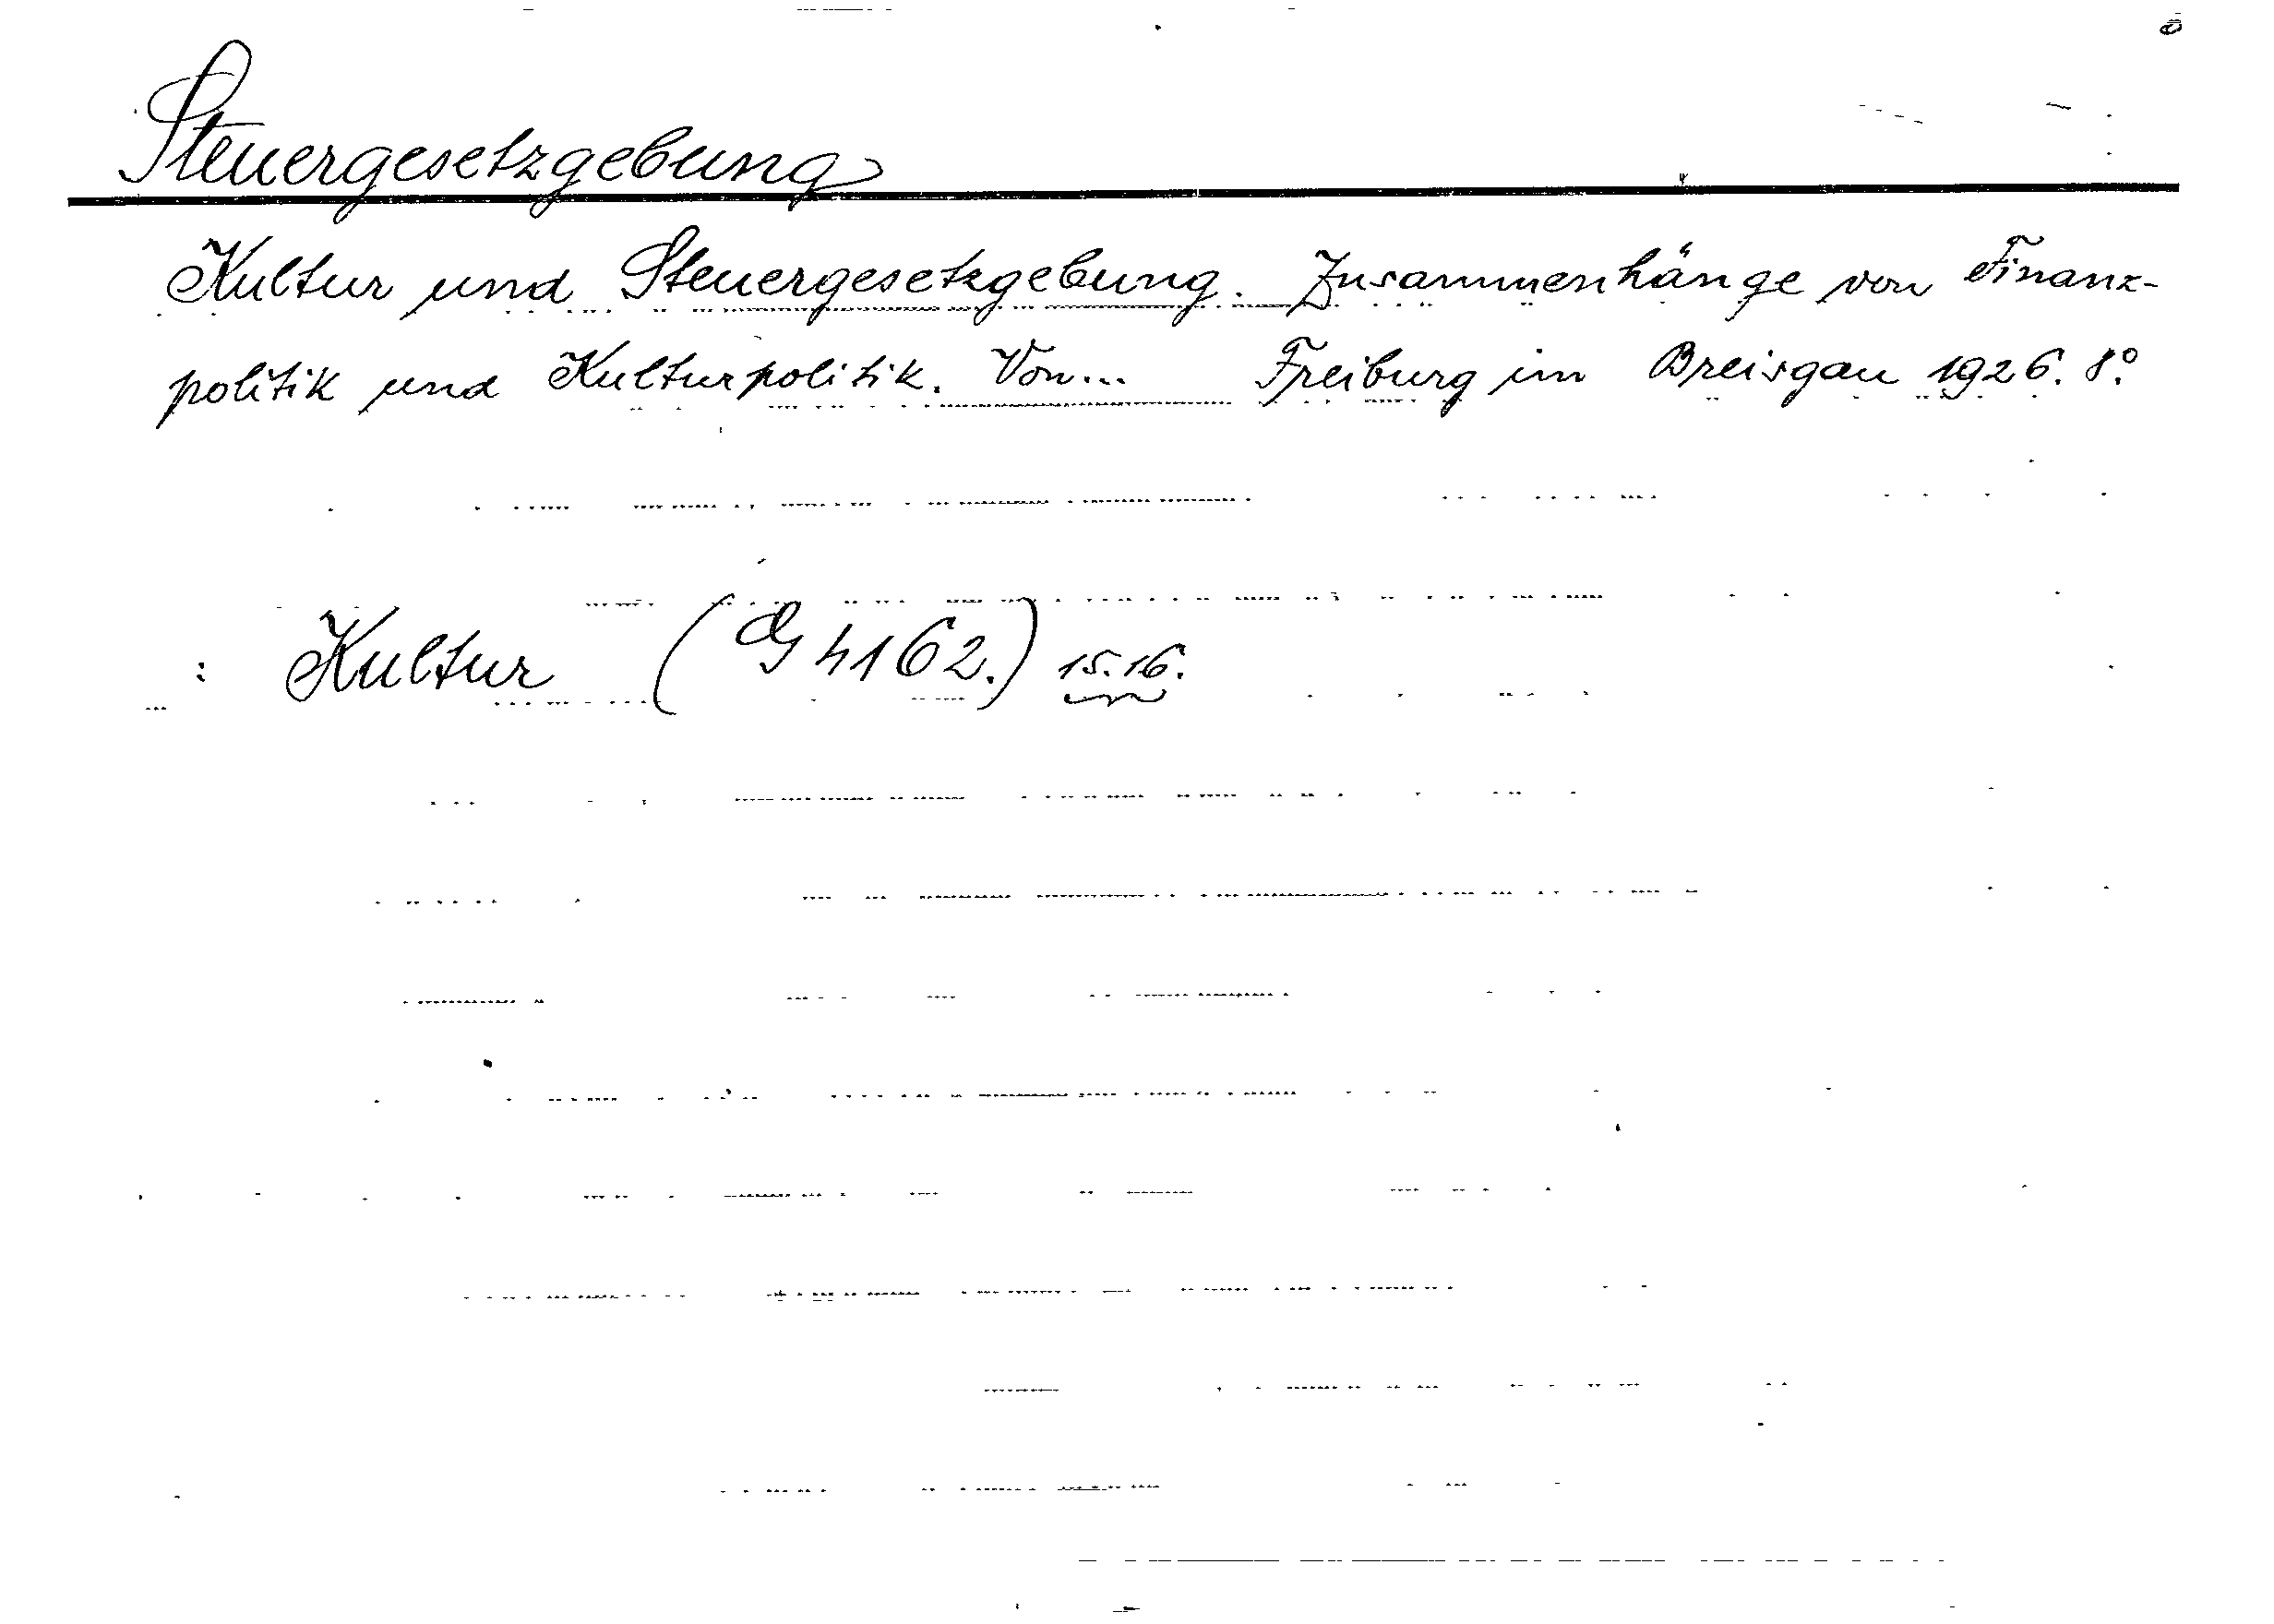 Steuergesetzgebung
Kultur und Steuergesetzgebung. Zusammenhänge von Finanz-
politik und Kulturpolitik. Von... Freiburg im Breisgau 1926. 8°.
: Kultur (G 4162.) 15.16.